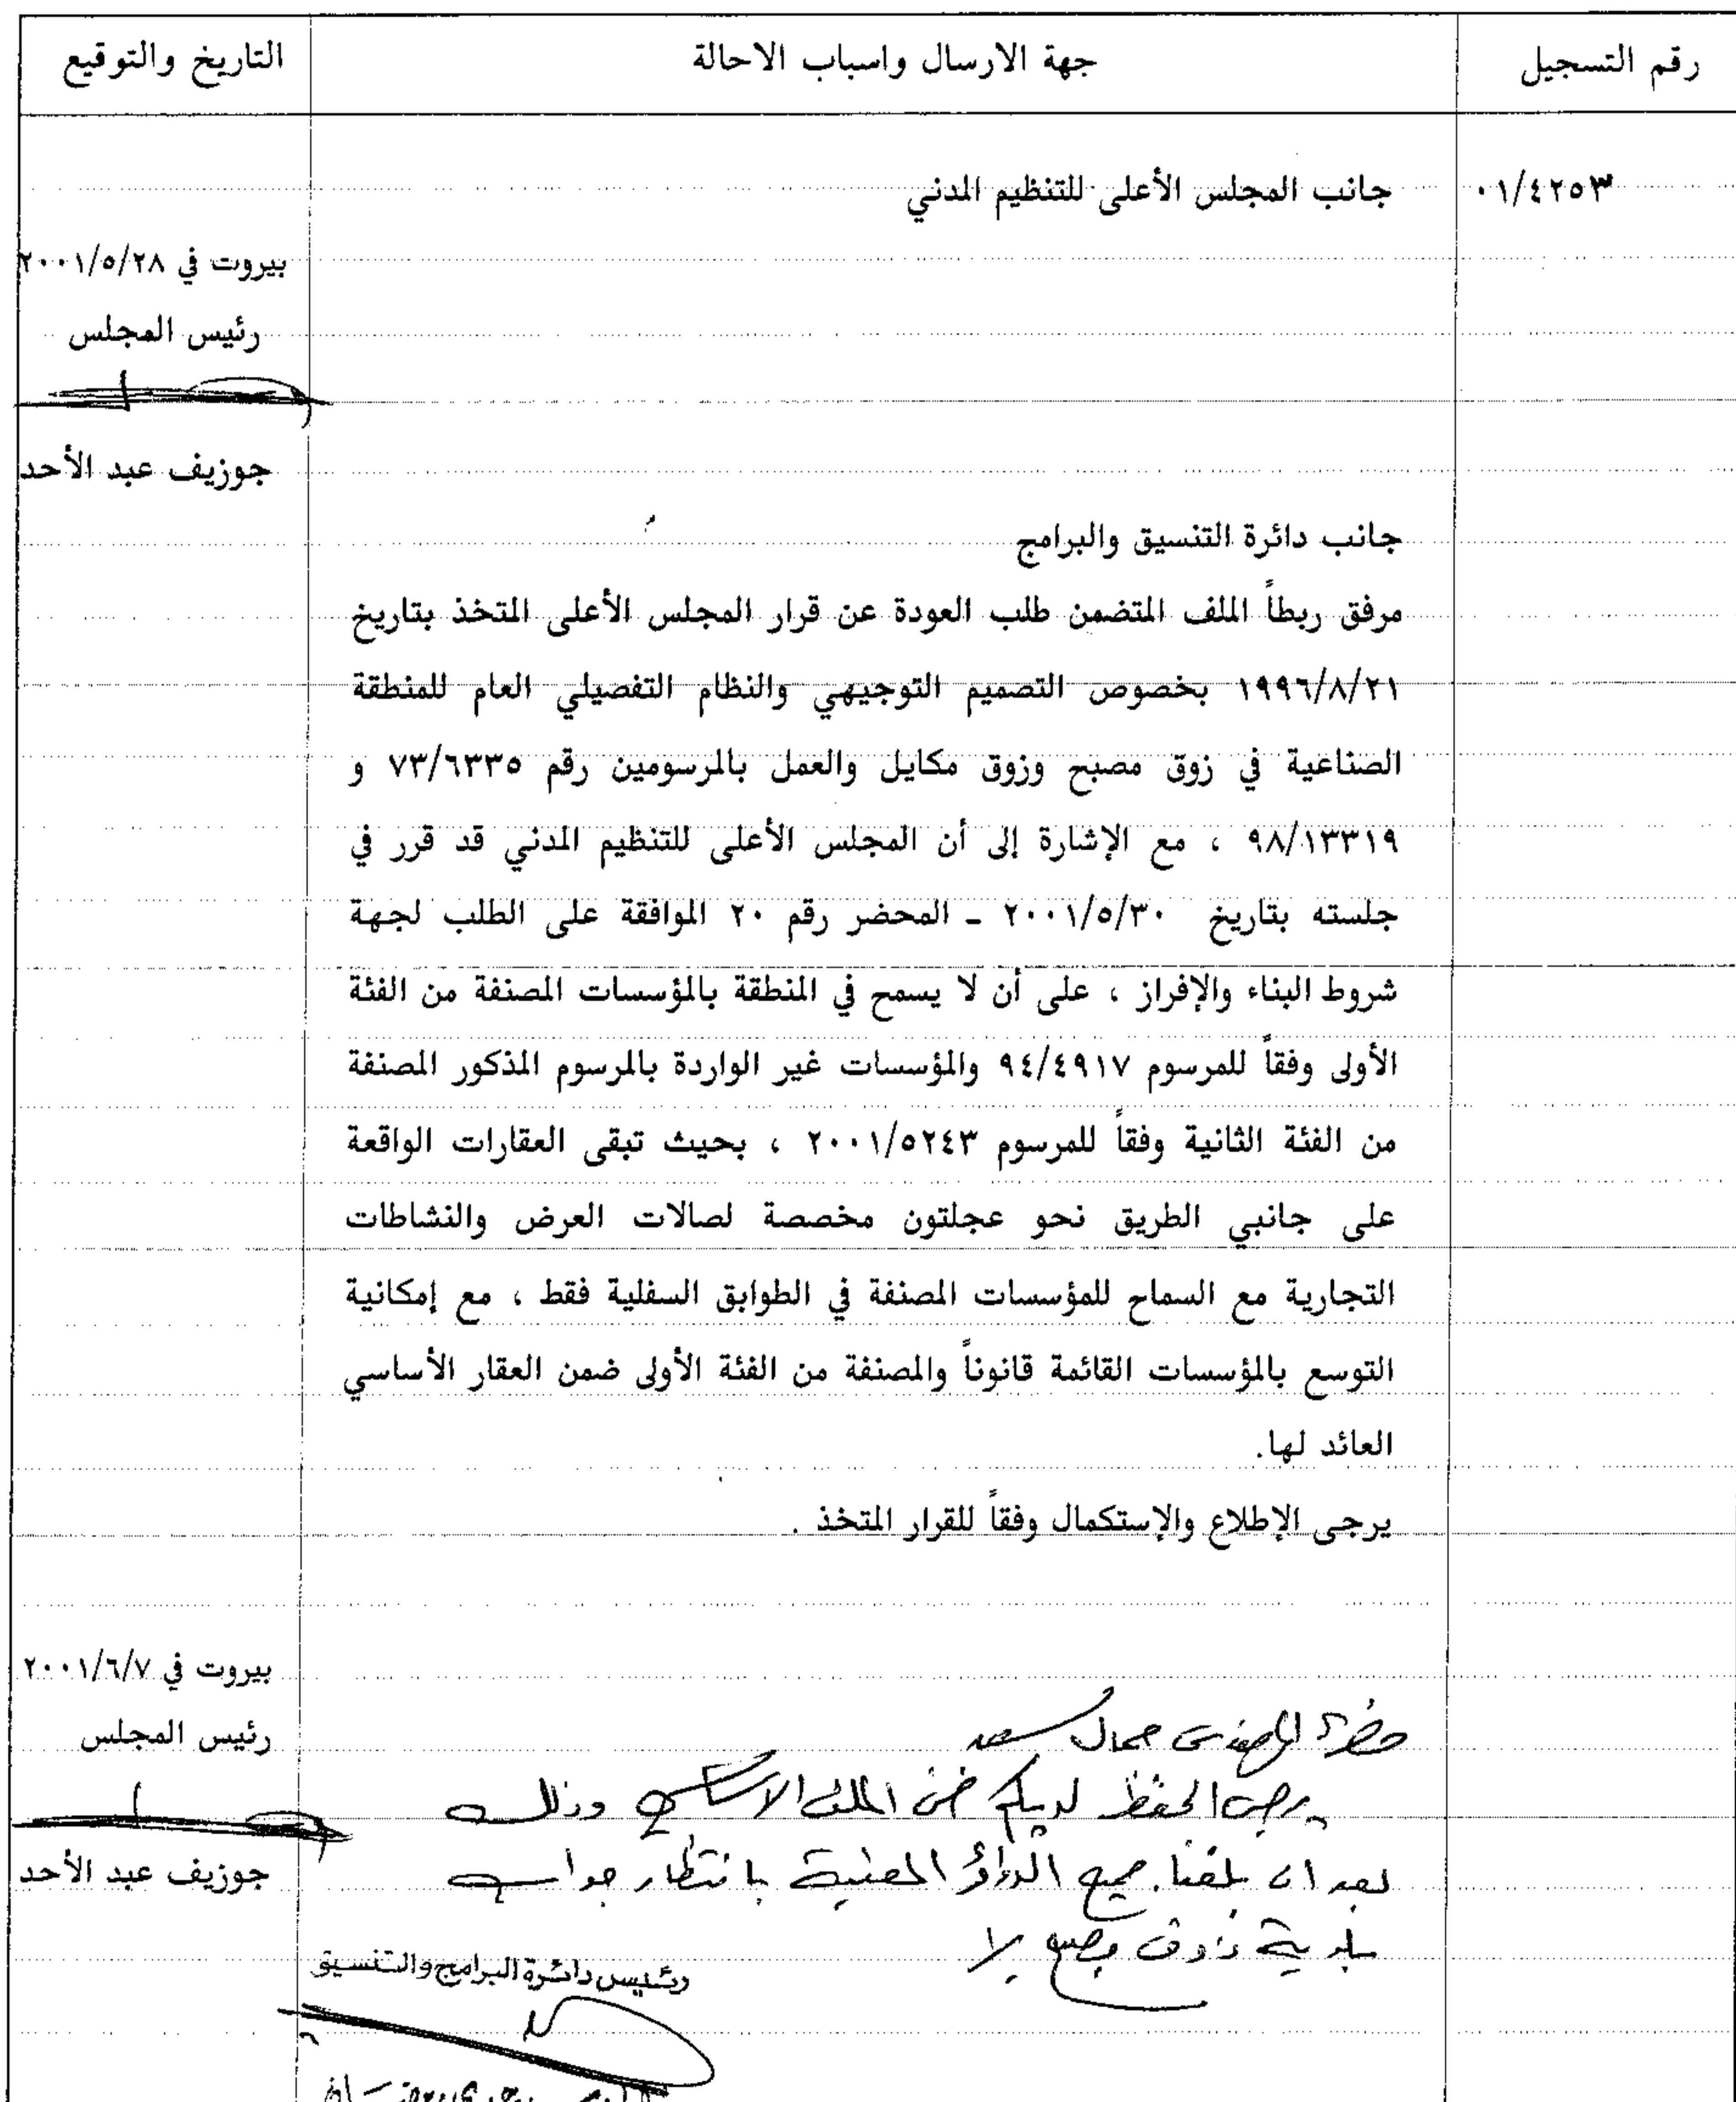 رقم التسجيل
جهة الارسال واسباب الاحالة
التاريخ والتوقيع
٠١/٤٢٥٣
جانب المجلس الأعلى للتنظيم المدني
بيروت في ٢٠٠١/٥/٢٨
رئيس المجلس
جوزيف عبد الأحد
جانب دائرة التنسيق والبرامج
مرفق ربطاً الملف المتضمن طلب العودة عن قرار المجلس الأعلى المتخذ بتاريخ
١٩٩٦/٨/٢١ بخصوص التصميم التوجيهي والنظام التفصيلي العام للمنطقة
الصناعية في زوق مصبح وزوق مكايل والعمل بالمرسومين رقم ٧٣/٦٣٣٥ و
٩٨/١٣٣١٩ ، مع الإشارة إلى أن المجلس الأعلى للتنظيم المدني قد قرر في
جلسته بتاريخ ٢٠٠١/٥/٣٠ - المحضر رقم ٢٠ الموافقة على الطلب لجهة
شروط البناء والإفراز ، على أن لا يسمح في المنطقة بالمؤسسات المصنفة من الفئة
الأولى وفقاً للمرسوم ٩٤/٤٩١٧ والمؤسسات غير الواردة بالمرسوم المذكور المصنفة
من الفئة الثانية وفقاً للمرسوم ٢٠٠١/٥٢٤٣ ، بحيث تبقى العقارات الواقعة
على جانبي الطريق نحو عجلتون مخصصة لصالات العرض والنشاطات
التجارية مع السماح للمؤسسات المصنفة في الطوابق السفلية فقط ، مع إمكانية
التوسع بالمؤسسات القائمة قانوناً والمصنفة من الفئة الأولى ضمن العقار الأساسي
العائد لها.
يرجى الإطلاع والإستكمال وفقاً للقرار المتخذ .
بيروت في ٢٠٠١/٦/٧
رئيس المجلس
جوزيف عبد الأحد
حضرة المهندس جمال سعد
يرجى الحفظ لديكم ضمن الملف الاساسي وذلك
بعد ان بلغنا جميع الدوائر المعنية بانتظار جواب
بلدية زوق مصبح
رئيس دائرة البرامج والتنسيق